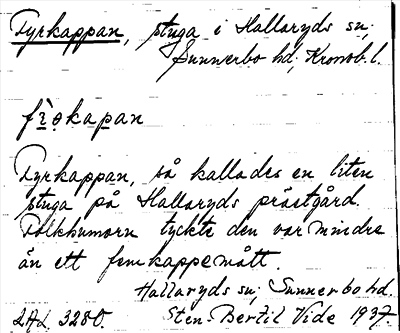 Fyrkappan, stuga i Hallaryds sn;
Sunnerbo hd; Kronob. l.
fìọkapan
Fyrkappan, så kallades en liten
stuga på Hallaryds prästgård.
Folkhumorn tyckte den var mindre
än ett femkappemått.
Hallaryds sn; Sunnerbo hd.
LAL 3280. Sten-Bertil Vide 1937.